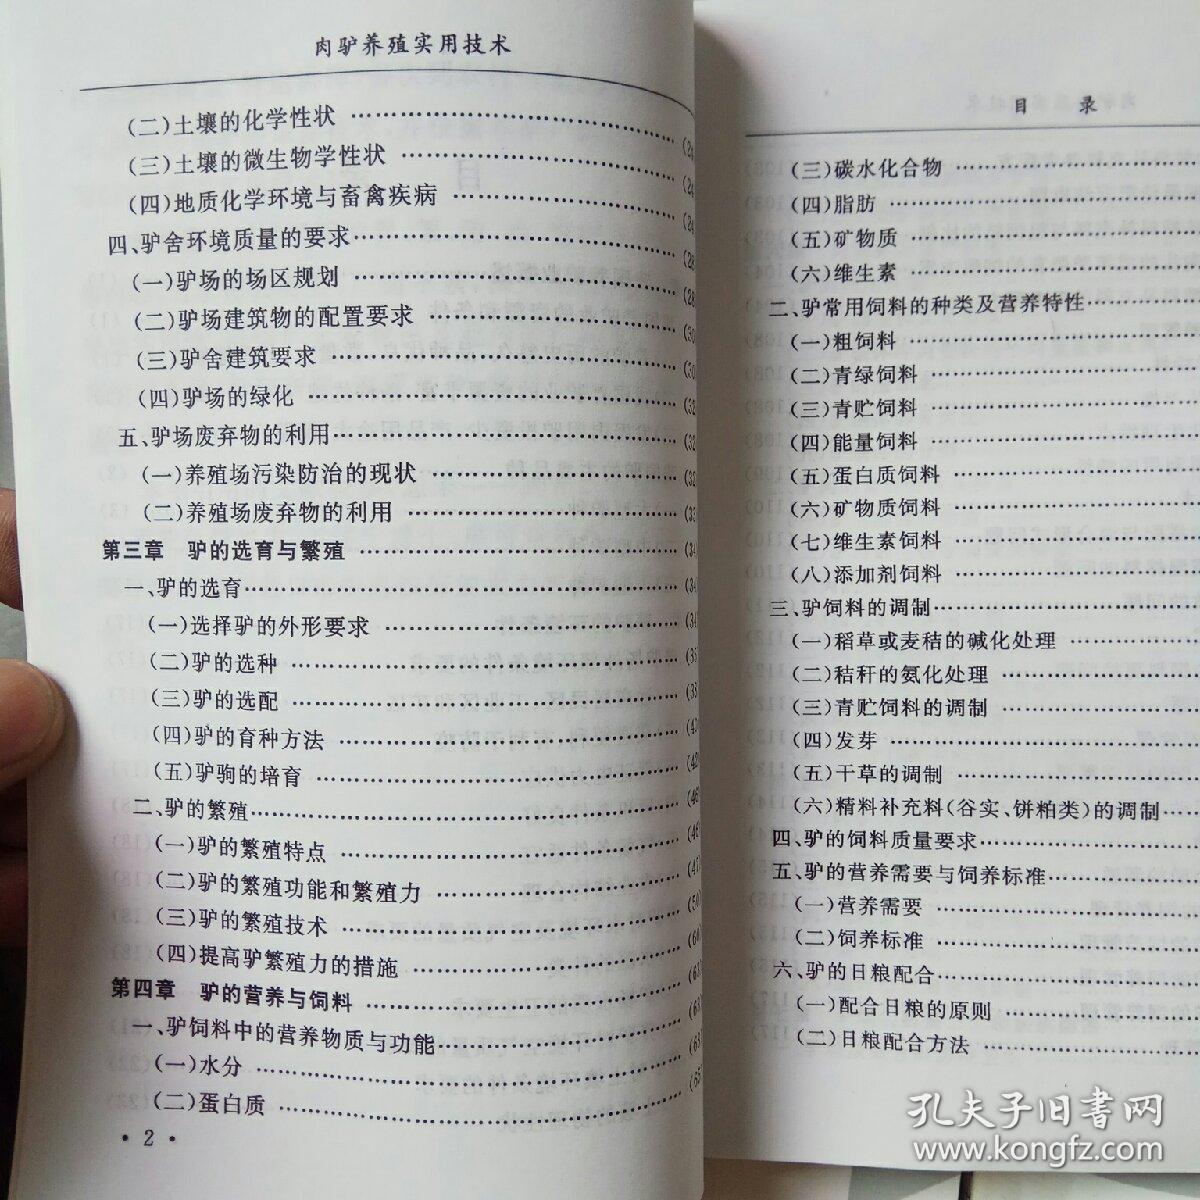 肉驴养殖实用技术
(二)土壤的化学性状 …… (24
(三)土壤的微生物学性状 …… (24
(四)地质化学环境与畜禽疾病 …… (24
四、驴舍环境质量的要求 …… (28
(一)驴场的场区规划 …… (28
(二)驴场建筑物的配置要求 …… (30
(三)驴舍建筑要求 …… (30
(四)驴场的绿化 …… (32
五、驴场废弃物的利用 …… (32
(一)养殖场污染防治的现状 …… (32
(二)养殖场废弃物的利用 …… (33
第三章 驴的选育与繁殖 …… (34
一、驴的选育 …… (34
(一)选择驴的外形要求 …… (34
(二)驴的选种 …… (35
(三)驴的选配 …… (38
(四)驴的育种方法 …… (42
(五)驴驹的培育 …… (42
二、驴的繁殖 …… (46
(一)驴的繁殖特点 …… (46
(二)驴的繁殖功能和繁殖力 …… (47
(三)驴的繁殖技术 …… (50
(四)提高驴繁殖力的措施 …… (60
第四章 驴的营养与饲料 …… (63
一、驴饲料中的营养物质与功能 …… (63
(一)水分 …… (63
(二)蛋白质 …… (65
· 2 ·
目 录
(三)碳水化合物 ……
(四)脂肪 ……
(五)矿物质 ……
(六)维生素 ……
二、驴常用饲料的种类及营养特性 ……
(一)粗饲料 ……
(二)青绿饲料 ……
(三)青贮饲料 ……
(四)能量饲料 ……
(五)蛋白质饲料 ……
(六)矿物质饲料 ……
(七)维生素饲料 ……
(八)添加剂饲料 ……
三、驴饲料的调制 ……
(一)稻草或麦秸的碱化处理 ……
(二)秸秆的氨化处理 ……
(三)青贮饲料的调制 ……
(四)发芽 ……
(五)干草的调制 ……
(六)精料补充料(谷实、饼粕类)的调制 ……
四、驴的饲料质量要求 ……
五、驴的营养需要与饲养标准 ……
(一)营养需要 ……
(二)饲养标准 ……
六、驴的日粮配合 ……
(一)配合日粮的原则 ……
(二)日粮配合方法 ……
孔夫子旧书网
www.kongfz.com